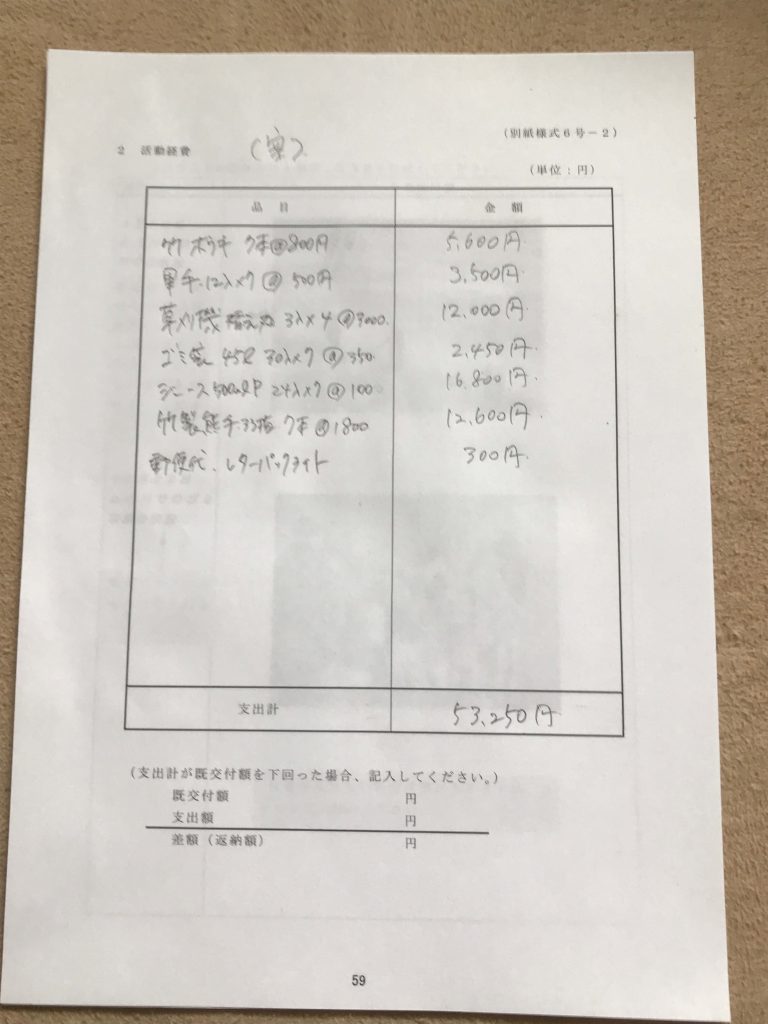 (別紙様式6号-2)
2 活動経費 (案)
(単位:円)
品目 金額
竹ボウキ 7本@800円 5,600円
軍手.12入×7@500円 3,500円
草刈機 替え刃 3入×4@3000. 12,000円.
ゴミ袋 45ℓ 30入×7@350 2,450円.
ジュース500mlP 24入×7@100 16,800円.
竹製熊手 7本@1800 12,600円
郵便代.レターパックライト 300円.
支出計 53,250円
(支出計が既交付額を下回った場合、記入してください。)
既交付額 円
支出額 円
差額(返納額) 円
59